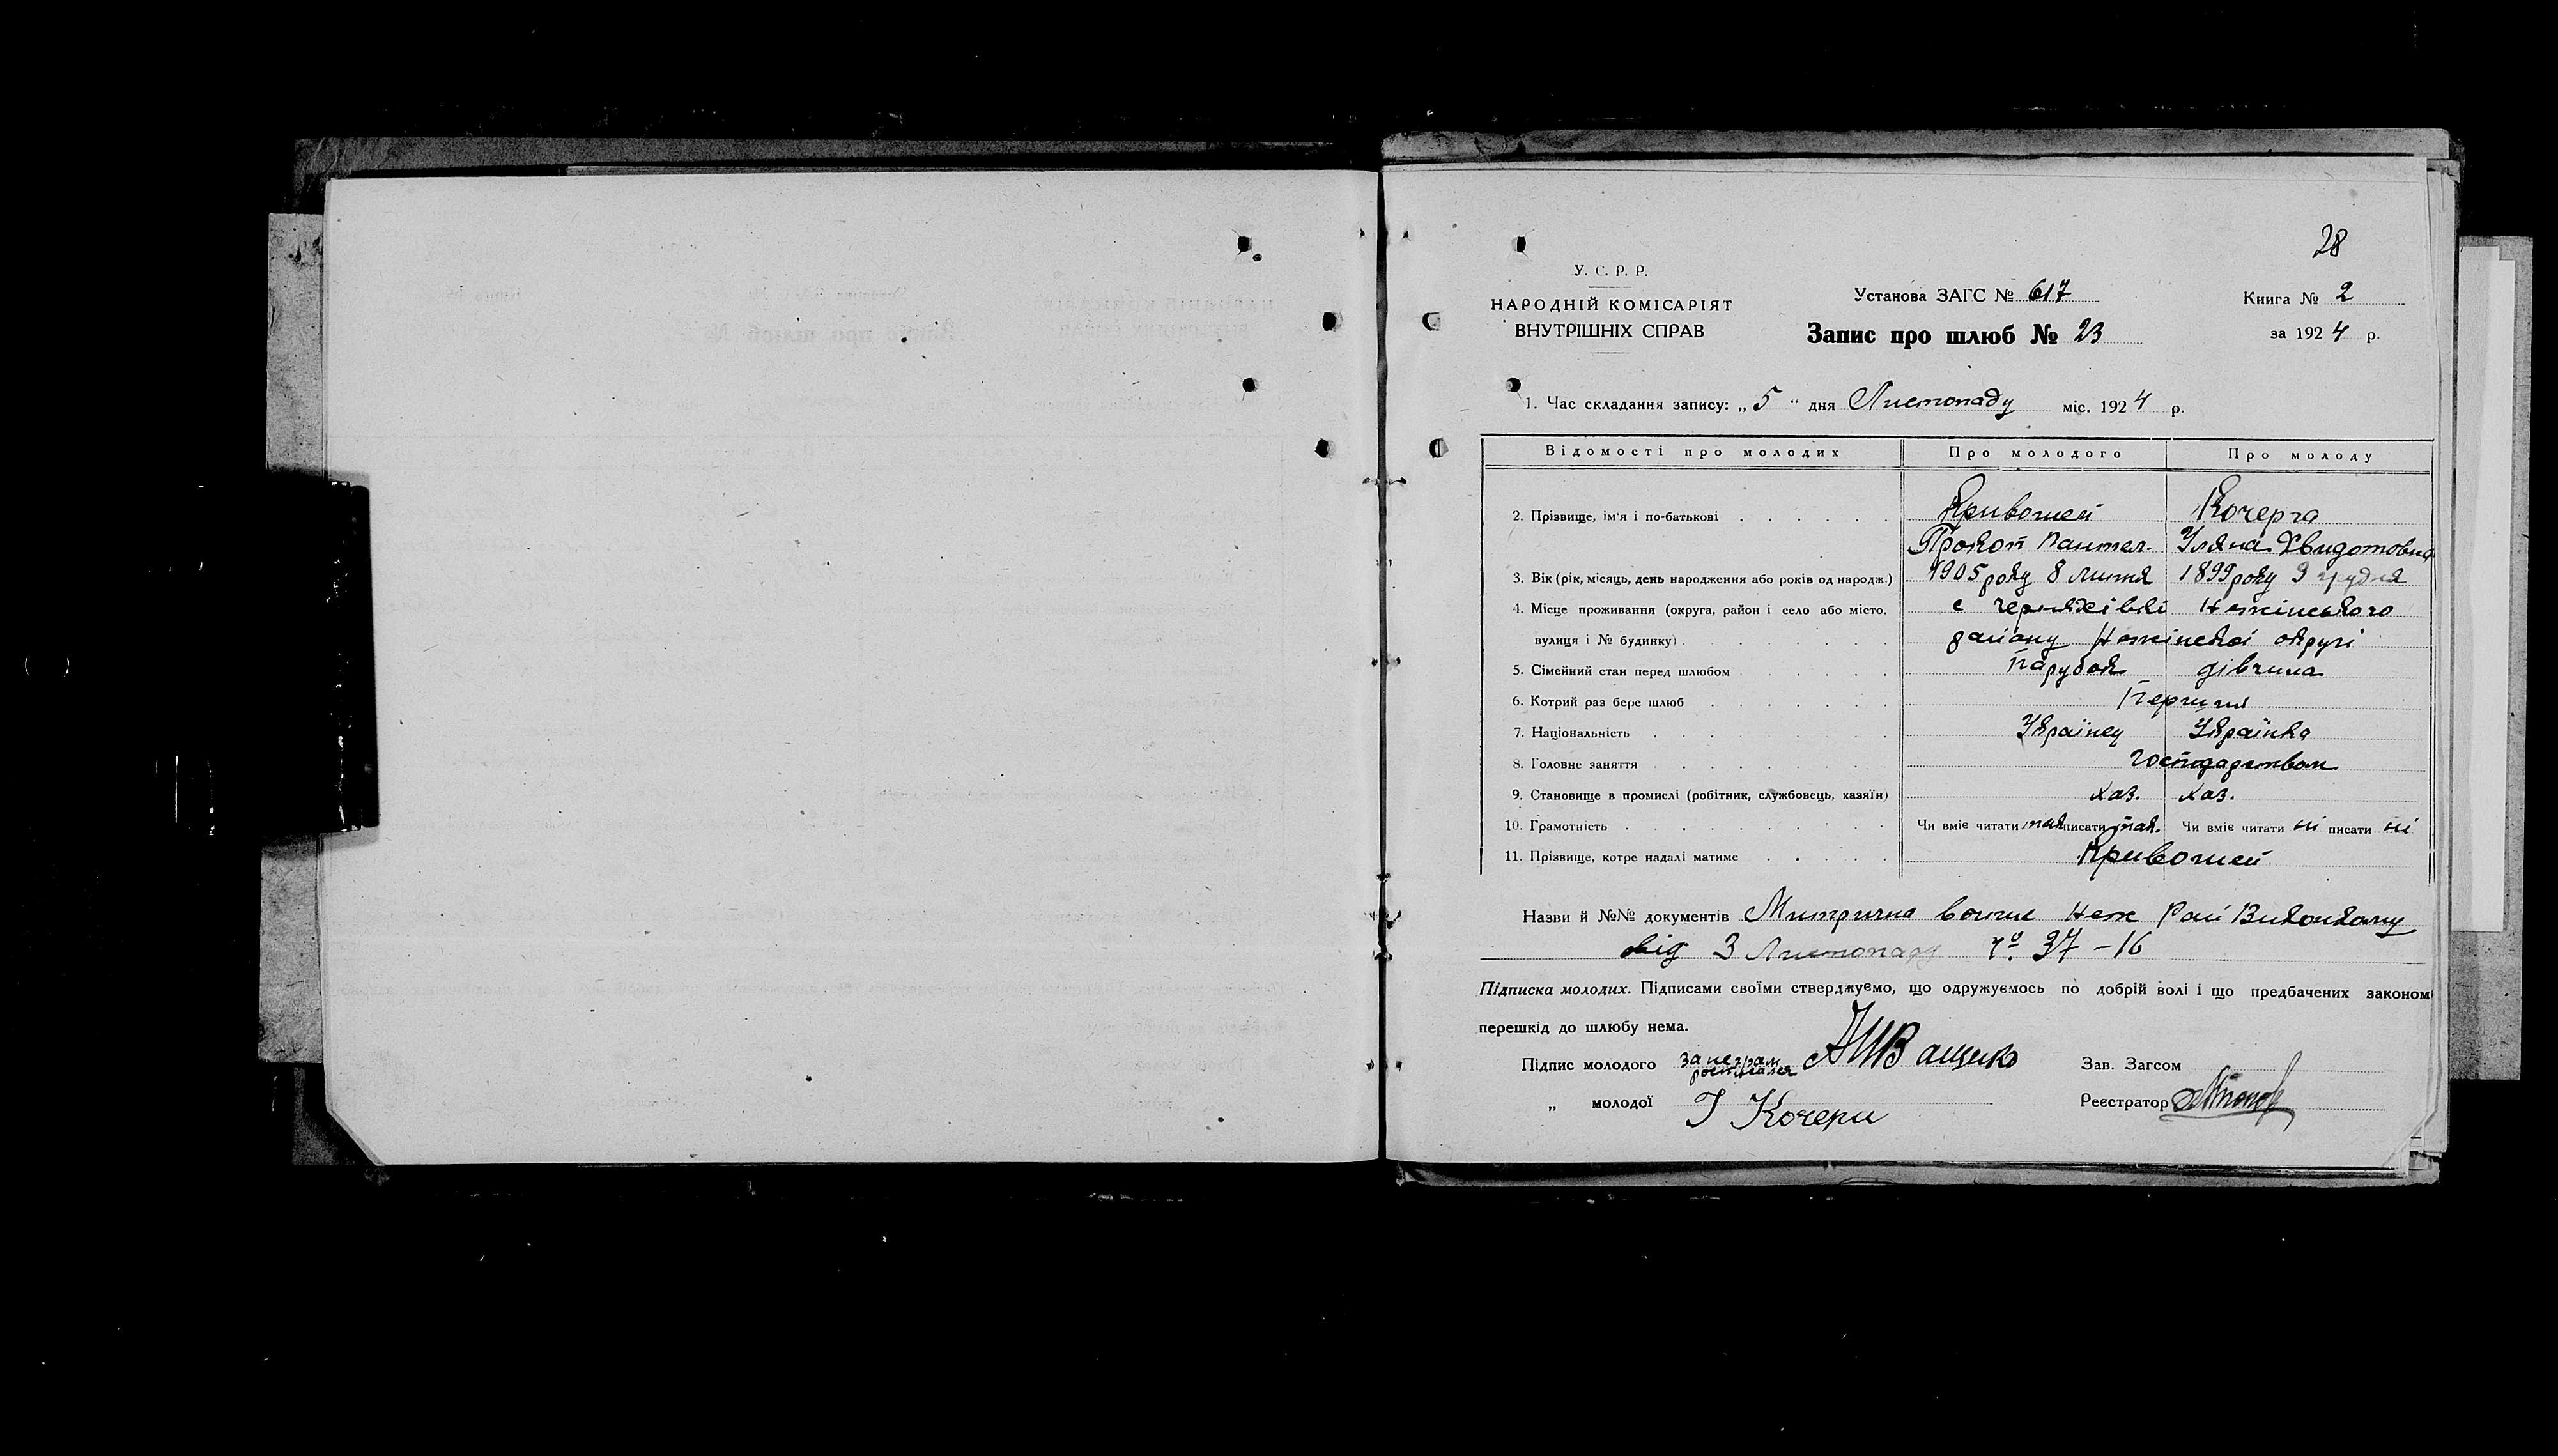 28
У. С. Р. Р.
НАРОДНІЙ КОМІСАРІЯТ
ВНУТРІШНІХ СПРАВ
Установа ЗАГС № 617
Запис про шлюб № 23
Книга № 2
за 1924 р.
1. Час складання запису: „5“ дня Листопаду міс. 1924 р.
Відомості про молодих Про молодого Про молоду
2. Прізвище, ім'я і по-батькові Кривошей Кочерга
Прокоп Пантел. Уляна Хвидотовна
3. Вік (рік, місяць, день народження або років од народж.) 1905 року 8 липня 1899 року 9 грудня
4. Місце проживання (округа, район і село або місто, с Черняхівкі Неженського
вулиця і № будинку) району Неженскої округі
5. Сімейний стан перед шлюбом парубок дівчина
6. Котрий раз бере шлюб Перший
7. Національність Українец Українка
8. Головне заняття Господарством
9. Становище в промислі (робітник, службовець, хазяїн) хаз. хаз.
10. Грамотність Чи вміє читати так писати так. Чи вміє читати ні писати ні
11. Прізвище, котре надалі матиме Кривошей
Назви й №№ документів Митрична Неж Рай Виконкому
від 3 Листопаду ч. 37-16
Підписка молодих. Підписами своїми стверджуємо, що одружуємось по добрій волі і що предбачених законом
перешкід до шлюбу нема.
Підпис молодого за неграм Іващенко
росписался
„ молодої Кочерги
Зав. Загсом
Реєстратор